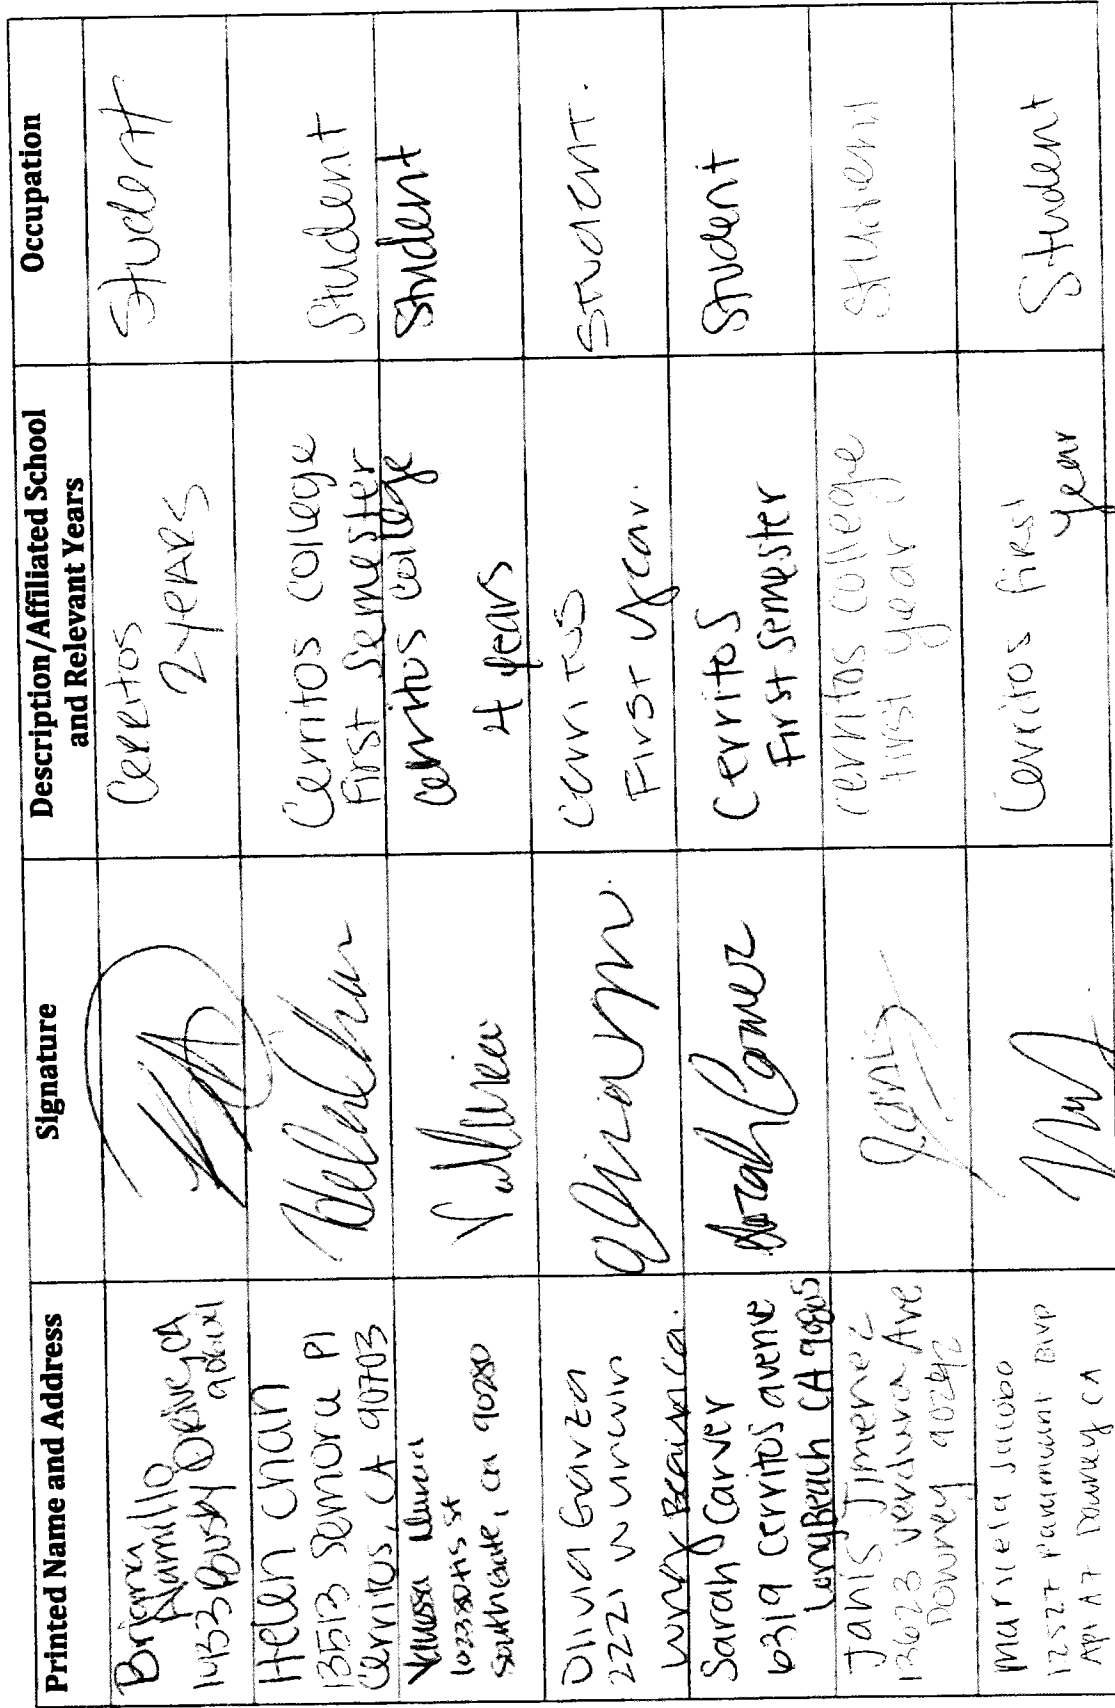 Printed Name and Address
Signature
Description/Affiliated School
and Relevant Years
Occupation
Briana
14533
Drive, CA
Cerritos
2 years
Student
Helen Chan
13513 Semora Pl
Cerritos, CA 90703
Helen Chan
Cerritos college
First semester
Student
Vanessa
South Gate, ca 90280
cerritos college
4 years
Student
Olivia Garza
2221 w
Long Beach ca.
Cerritos
First year.
Student.
Sarah Carver
6319 cerritos avenue
Long Beach CA 90805
Sarah Carver
Cerritos
First Semester
Student
Janis Jimenez
13623 Verdura Ave
Downey 90242
Janis
cerritos college
first year
Student
Maricela Jacobo
12527 Paramount Blvd
Apt A7 Downey CA
Cerritos first
year
Student